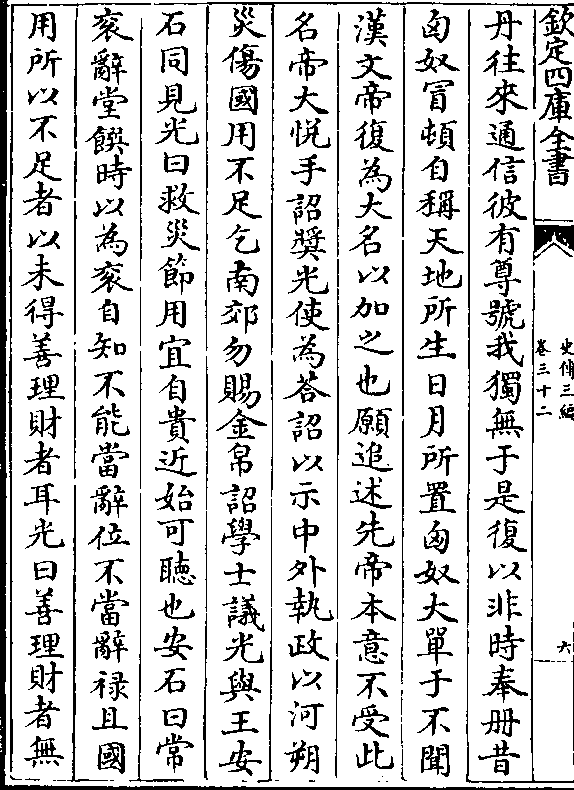 欽定四庫全書
史傳三編
卷三十二
六
丹往來通信彼有尊號我獨無于是復以非時奉册昔
匈奴冒頓自稱天地所生日月所置匈奴大單于不聞
漢文帝復為大名以加之也願追述先帝本意不受此
名帝大悅手詔奬光使為答詔以示中外執政以河朔
災傷國用不足乞南郊勿賜金帛詔學士議光與王安
石同見光曰救災節用宜自貴近始可聽也安石曰常
衮辭堂饌時以為衮自知不能當辭位不當辭禄且國
用所以不足者以未得善理財者耳光曰善理財者無